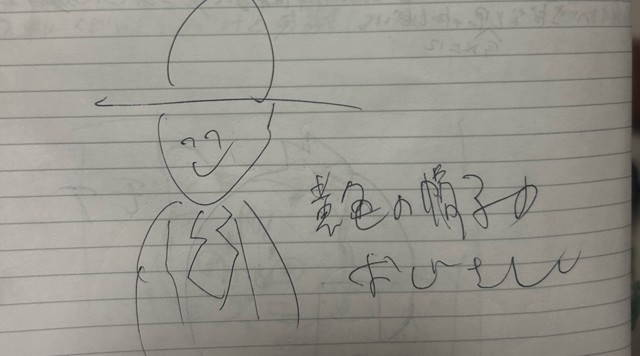 黄色の帽子の
おじさん